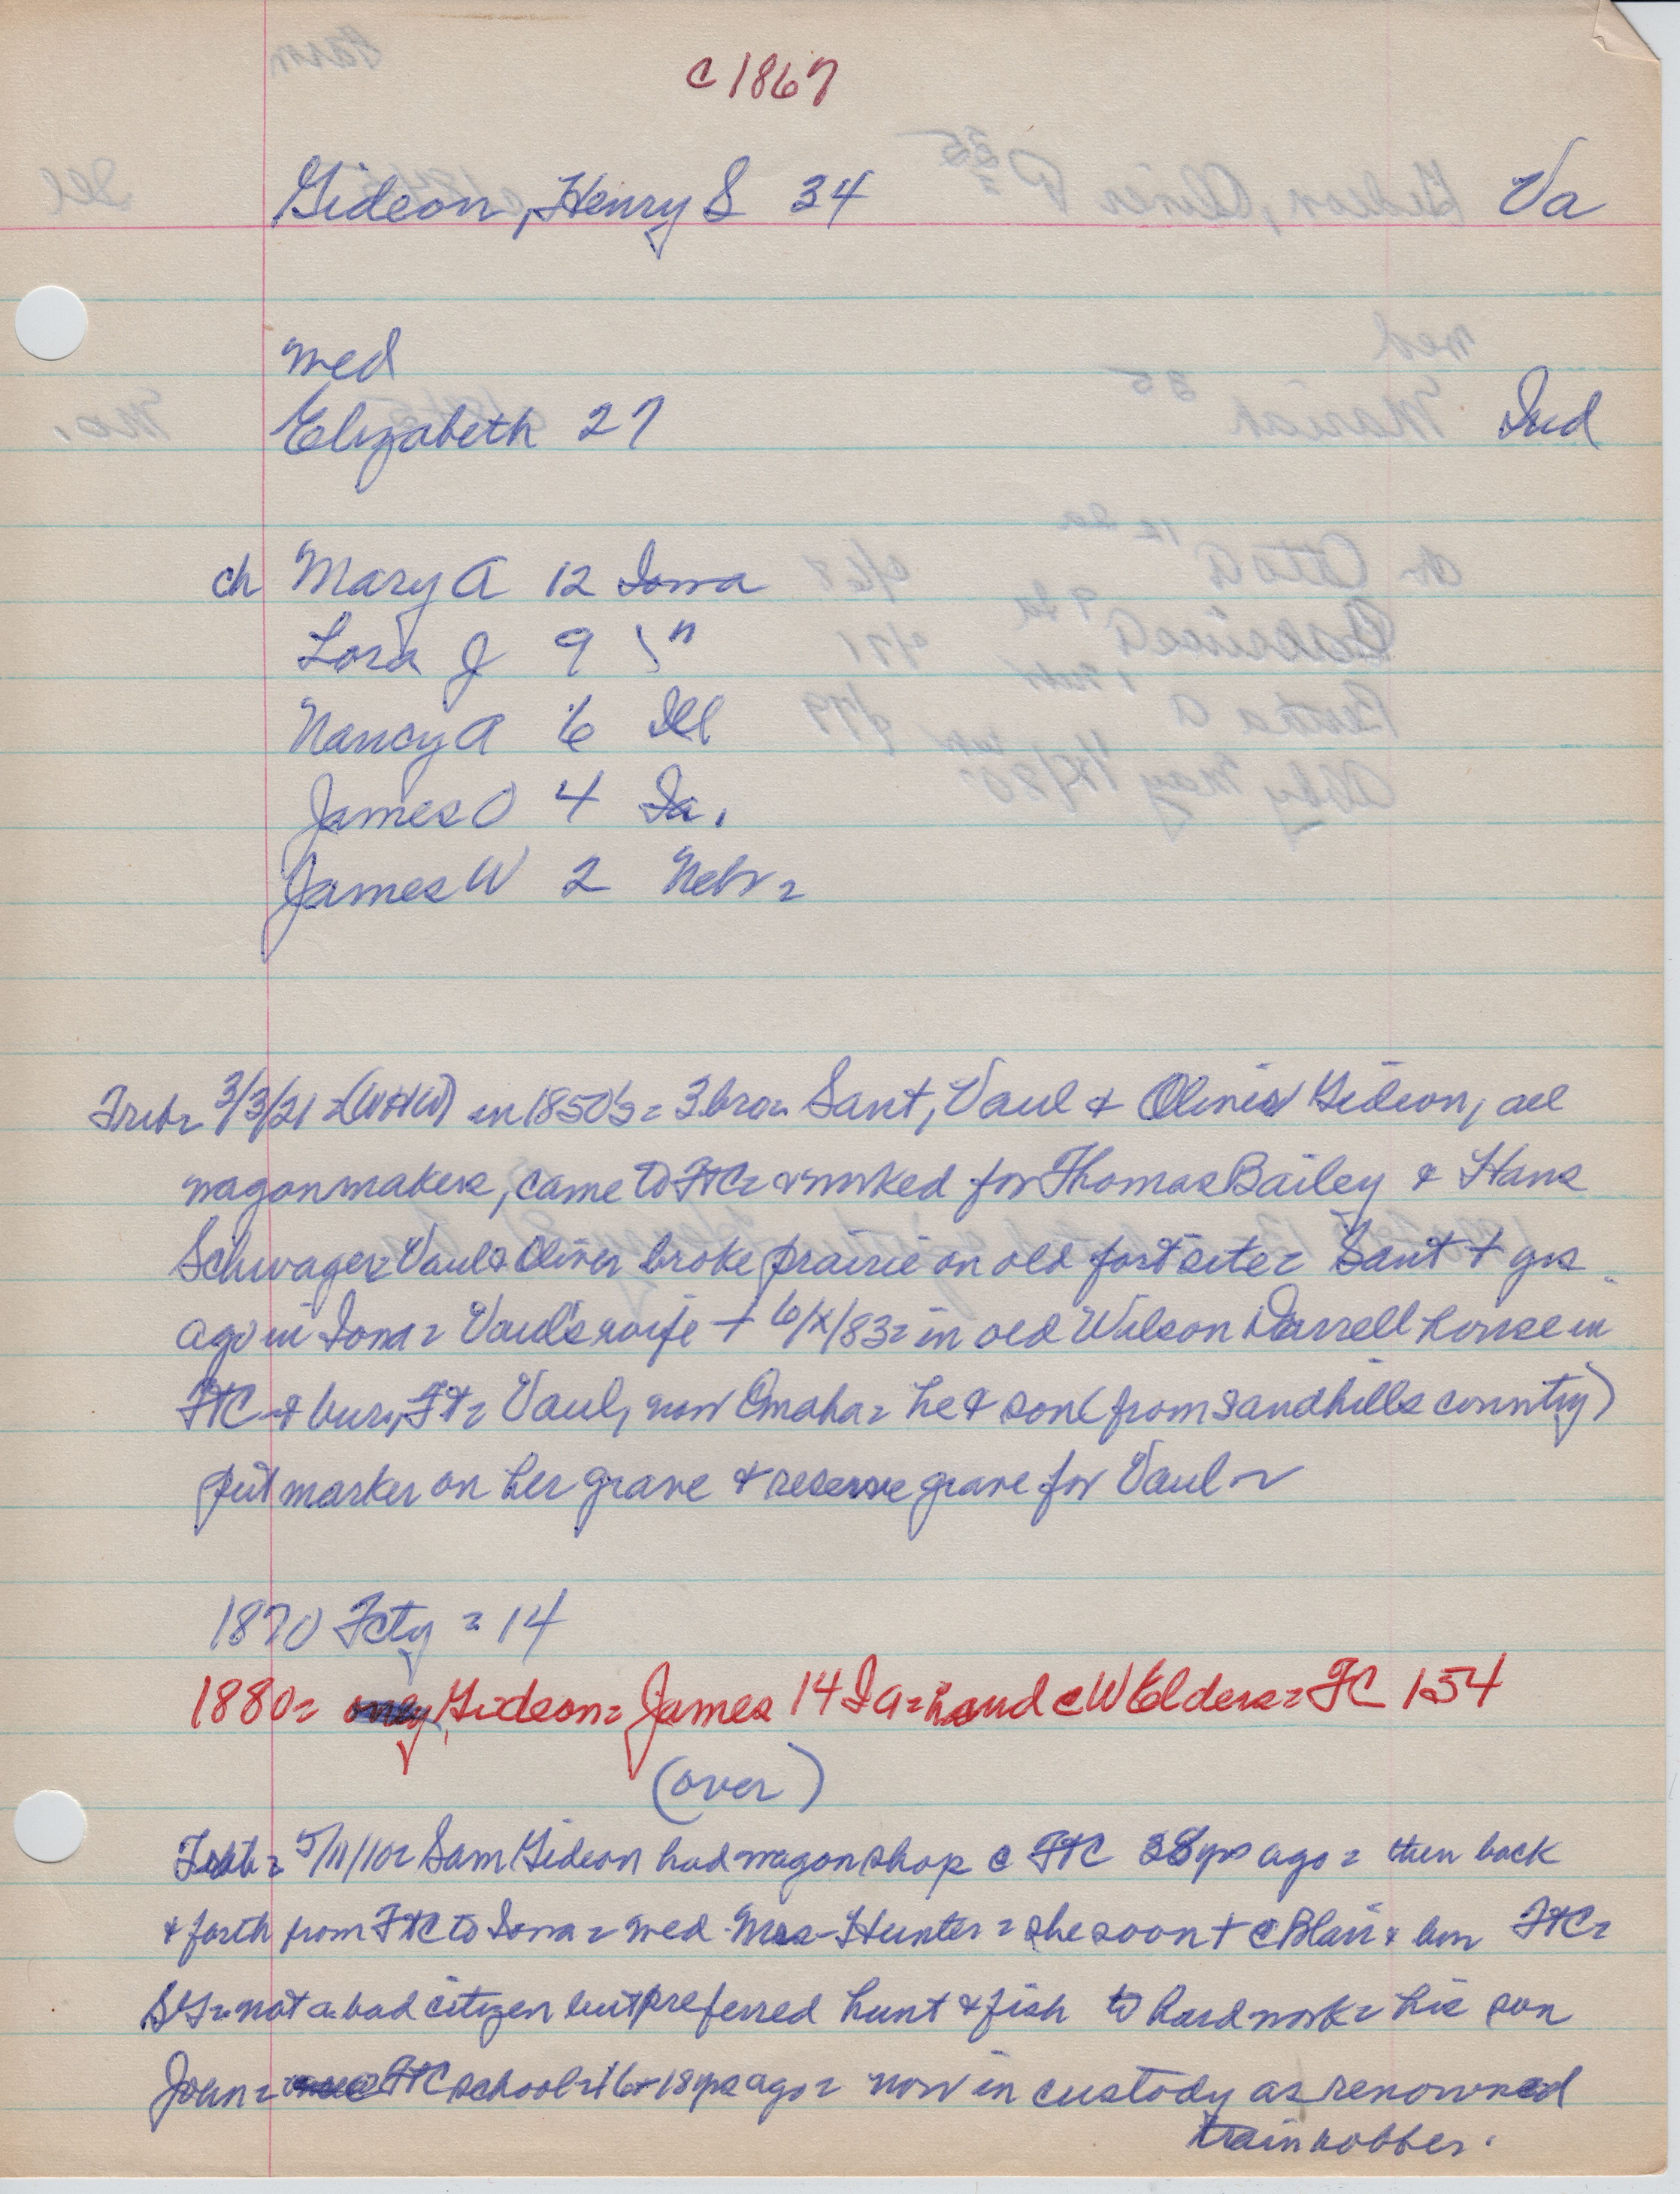 c 1867
Gideon, Henry S 34 Va
med
Elizabeth 27 Ind
ch Mary A 12 Iowa
Lora J 9 "
Nancy A 6 Ill
James O 4 Ia.
James W 2 Nebr =
Trib = 3/3/21 = (WHW) in 1850's = 3 bro = Sant, Vaul & Oliver Gideon, all
wagonmakers, came to FtC = & worked for Thomas Bailey & Hans
Schwager = Vaul & Oliver broke prairie on old fort site = Sant + yrs
ago in Iowa = Vaul's wife + 6/X/83 = in old Wilson Darrell house in
FtC & bur, Ft = Vaul, now Omaha = he & son (from sandhills country)
put marker on her grave & reserve grave for Vaul ~
1870 Fcty = 14
1880 = Gideon = James 14 Ia = hand c W Elders = FC 154
(over)
5/11/10 = Sam Gideon had wagon shop c FtC 38 yrs ago = then back
& forth from FtC to Iowa = med Mrs Hunter = she soon + c Blair & bur FtC =
SG = not a bad citizen but preferred hunt & fish to hard work = his son
John = FtC school = 16-18 yrs ago = now in custody as renowned
train robber.